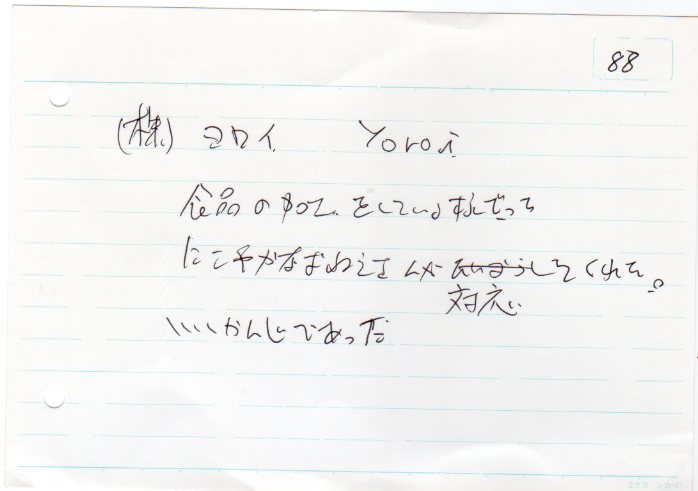 88
(株) ヨロイ Yoroi
食品の加工をしている
にこやかなおねえさんが たいおうしてくれた。
対応
いいかんじであった
コクヨ シカ-